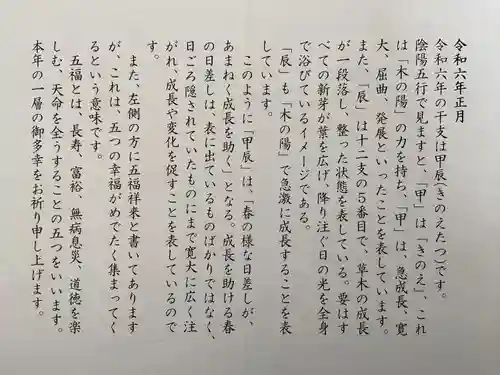 令和六年正月
令和六年の干支は甲辰(きのえたつ)です。
陰陽五行で見ますと、「甲」は「きのえ」、これ
は「木の陽」の力を持ち、「甲」は、急成長、寛
大、屈曲、発展といったことを表しています。
また、「辰」は十二支の5番目で、草木の成長
が一段落し、整った状態を表している。要はす
べての新芽が葉を広げ、降り注ぐ日の光を全身
で浴びているイメージである。
「辰」も「木の陽」で急激に成長することを表
しています。
このように「甲辰」は、「春の様な日差しが、
あまねく成長を助く」となる。成長を助ける春
の日差しは、表に出ているものばかりではなく、
日ごろ隠されていたものにまで寛大に広く注
がれ、成長や変化を促すことを表しているので
す。
また、左側の方に五福祥来と書いてあります
が、これは、五つの幸福がめでたく集まってく
るという意味です。
五福とは、長寿、富裕、無病息災、道徳を楽
しむ、天命を全うすることの五つをいいます。
本年の一層の御多幸をお祈り申し上げます。